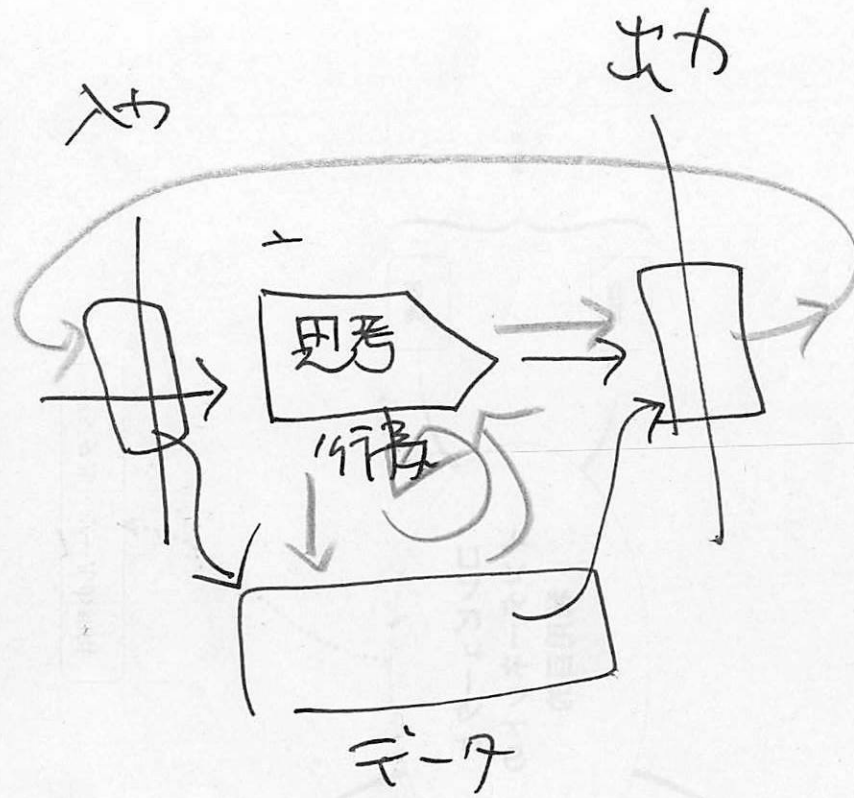 入力
出力
思考
行為
データ